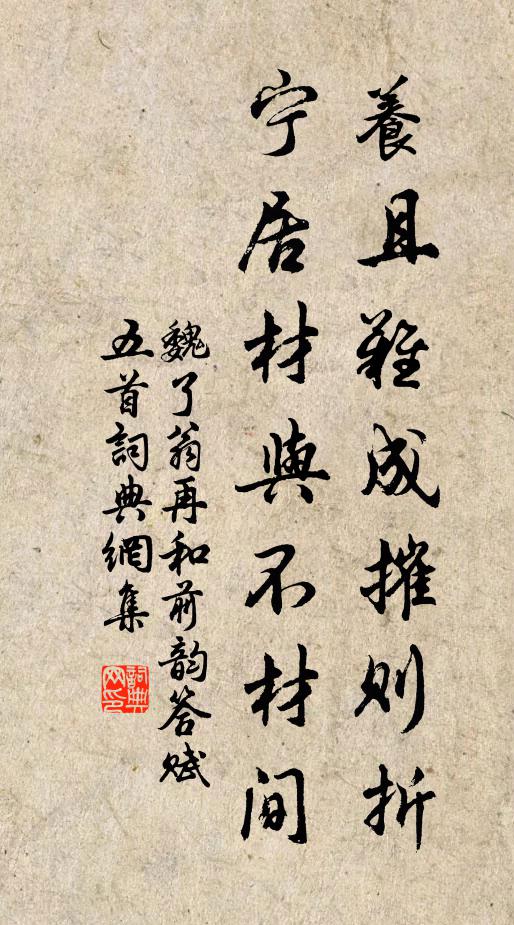 養且難成摧则折
宁居材與不材间
魏了翁再和前韵答赋
五首詞典網集
詞典
网印